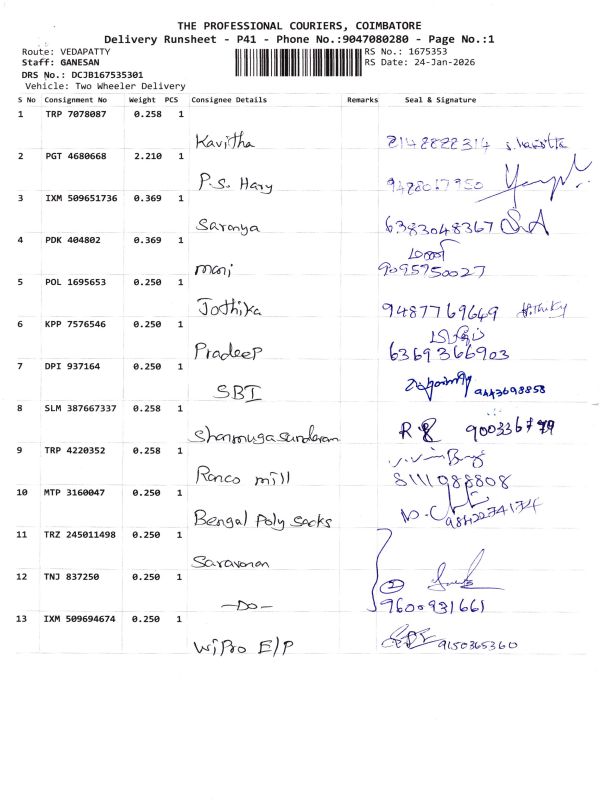 THE PROFESSIONAL COURIERS, COIMBATORE
Delivery Runsheet - P41 - Phone No.:9047080280 - Page No.:1
Route: VEDAPATTY RS No.: 1675353
Staff: GANESAN RS Date: 24-Jan-2026
DRS No.: DCJB167535301
Vehicle: Two Wheeler Delivery
S No Consignment No Weight PCS Consignee Details Remarks Seal & Signature
1 TRP 7078087 0.258 1
Kavitha
2 PGT 4680668 2.210 1
P.S. Hary
3 IXM 509651736 0.369 1
Saranya 6383048367 SA
4 PDK 404802 0.369 1
மணி
mani 9095750027
5 POL 1695653 0.250 1
Jothika 9487769649
6 KPP 7576546 0.250 1
Pradeep 6369366903
7 DPI 937164 0.250 1
SBI 9443698858
8 SLM 387667337 0.258 1
Shanmugasundaram
9 TRP 4220352 0.258 1
Ranco mill 8111088808
10 MTP 3160047 0.250 1
Bengal Poly Sacks
11 TRZ 245011498 0.250 1
Saravanan
12 TNJ 837250 0.250 1
2
—Do— 9600931661
13 IXM 509694674 0.250 1
Wipro E/P 9150365360